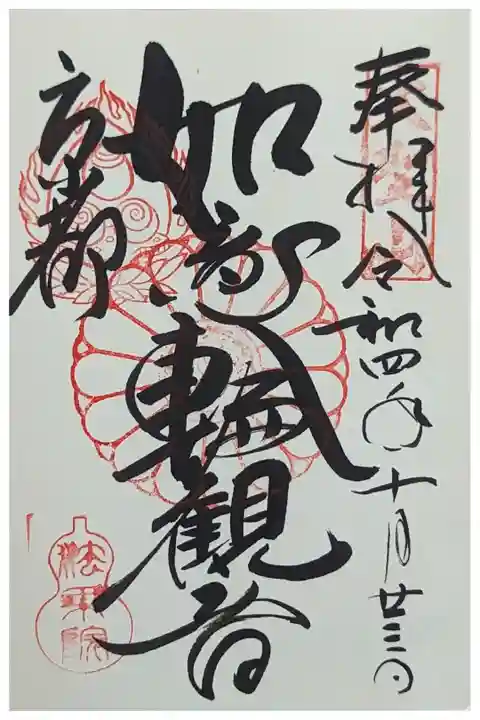 奉拝 令和四年十月廿三日
如意輪觀音
京都